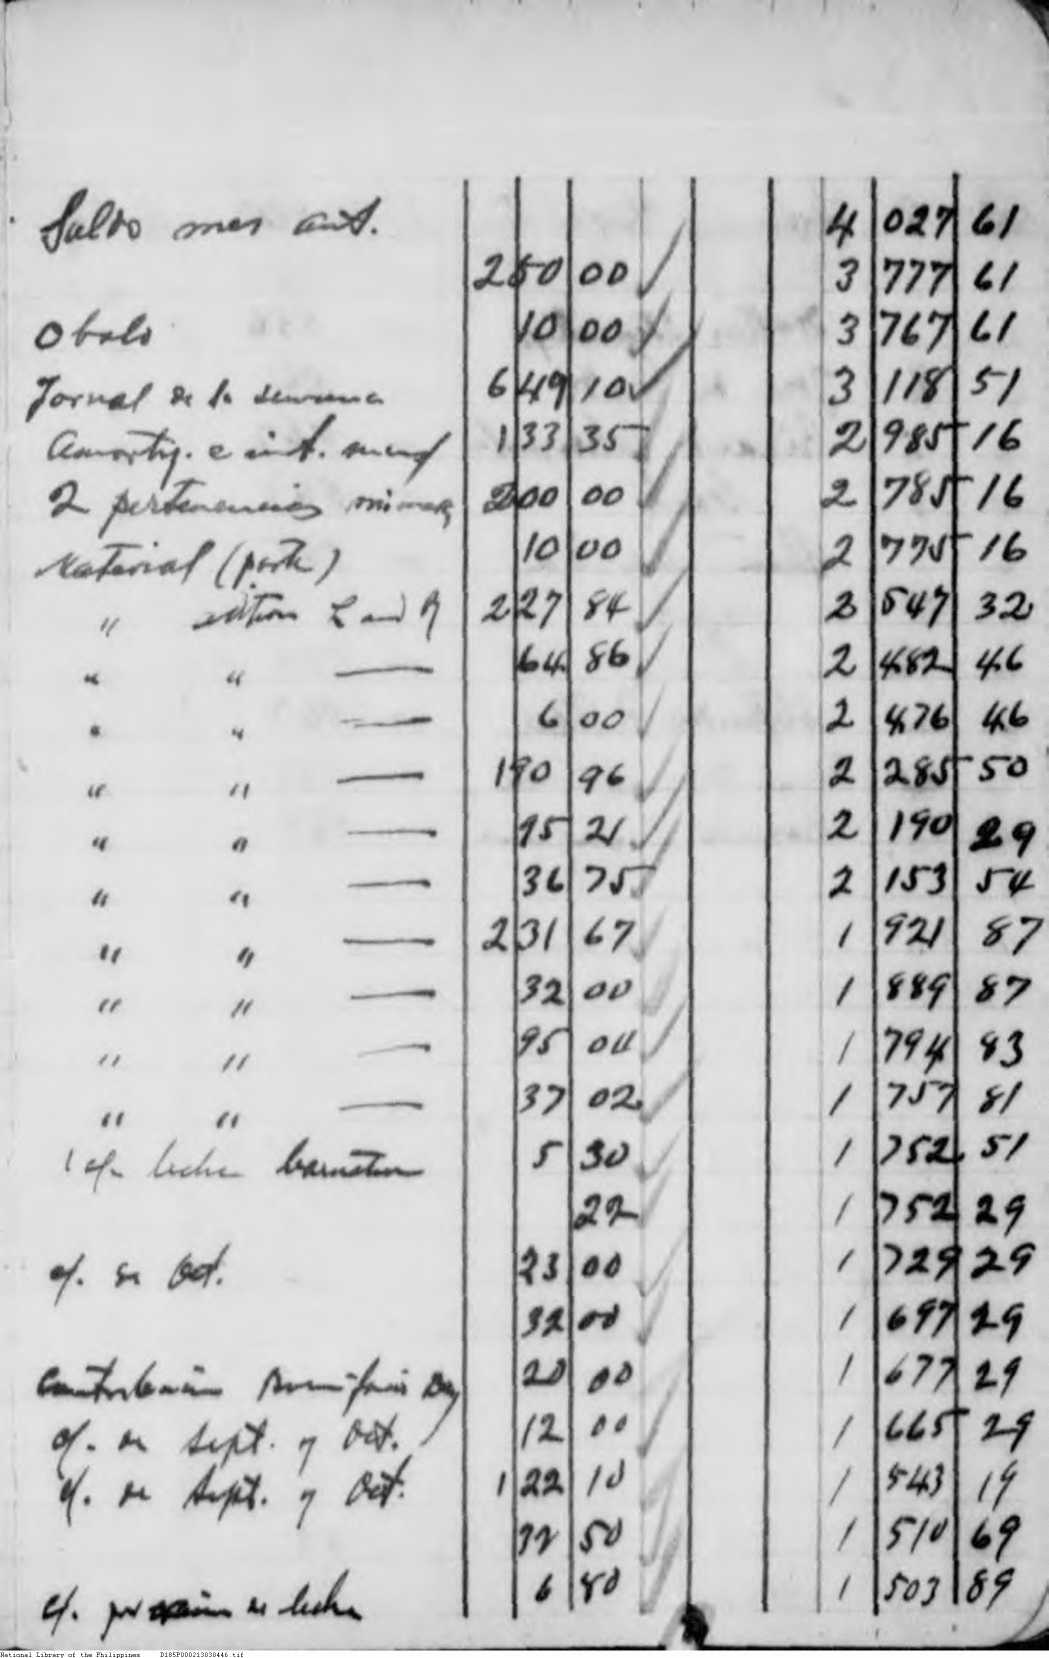 Saldo mes ant. 4 027 61
250 00 3 777 61
Obolo 10 00 3 767 61
Jornal de la semana 649 10 3 118 51
Amortiz. e int. 133 35 2 985 16
2 pertenencias mineras 200 00 2 785 16
Material (parte) 10 00 2 775 16
" L and 227 84 2 547 32
" " — 64 86 2 482 46
" " — 6 00 2 476 46
" " — 190 96 2 285 50
" " — 95 21 2 190 29
" " — 36 75 2 153 54
" " — 231 67 1 921 87
" " — 32 00 1 889 87
" " — 95 04 1 794 83
" " — 37 02 1 757 81
1 c/ leche Carnation 5 30 1 752 51
22 1 752 29
c/. de Oct. 23 00 1 729 29
32 00 1 697 29
Contribución Bonifacio Day 20 00 1 677 29
c/. de Sept. y Oct. 12 00 1 665 29
c/. de Sept. y Oct. 122 10 1 543 19
32 50 1 510 69
c/. por de leche 6 80 1 503 89
National Library of the Philippines D185P000213030446.tif